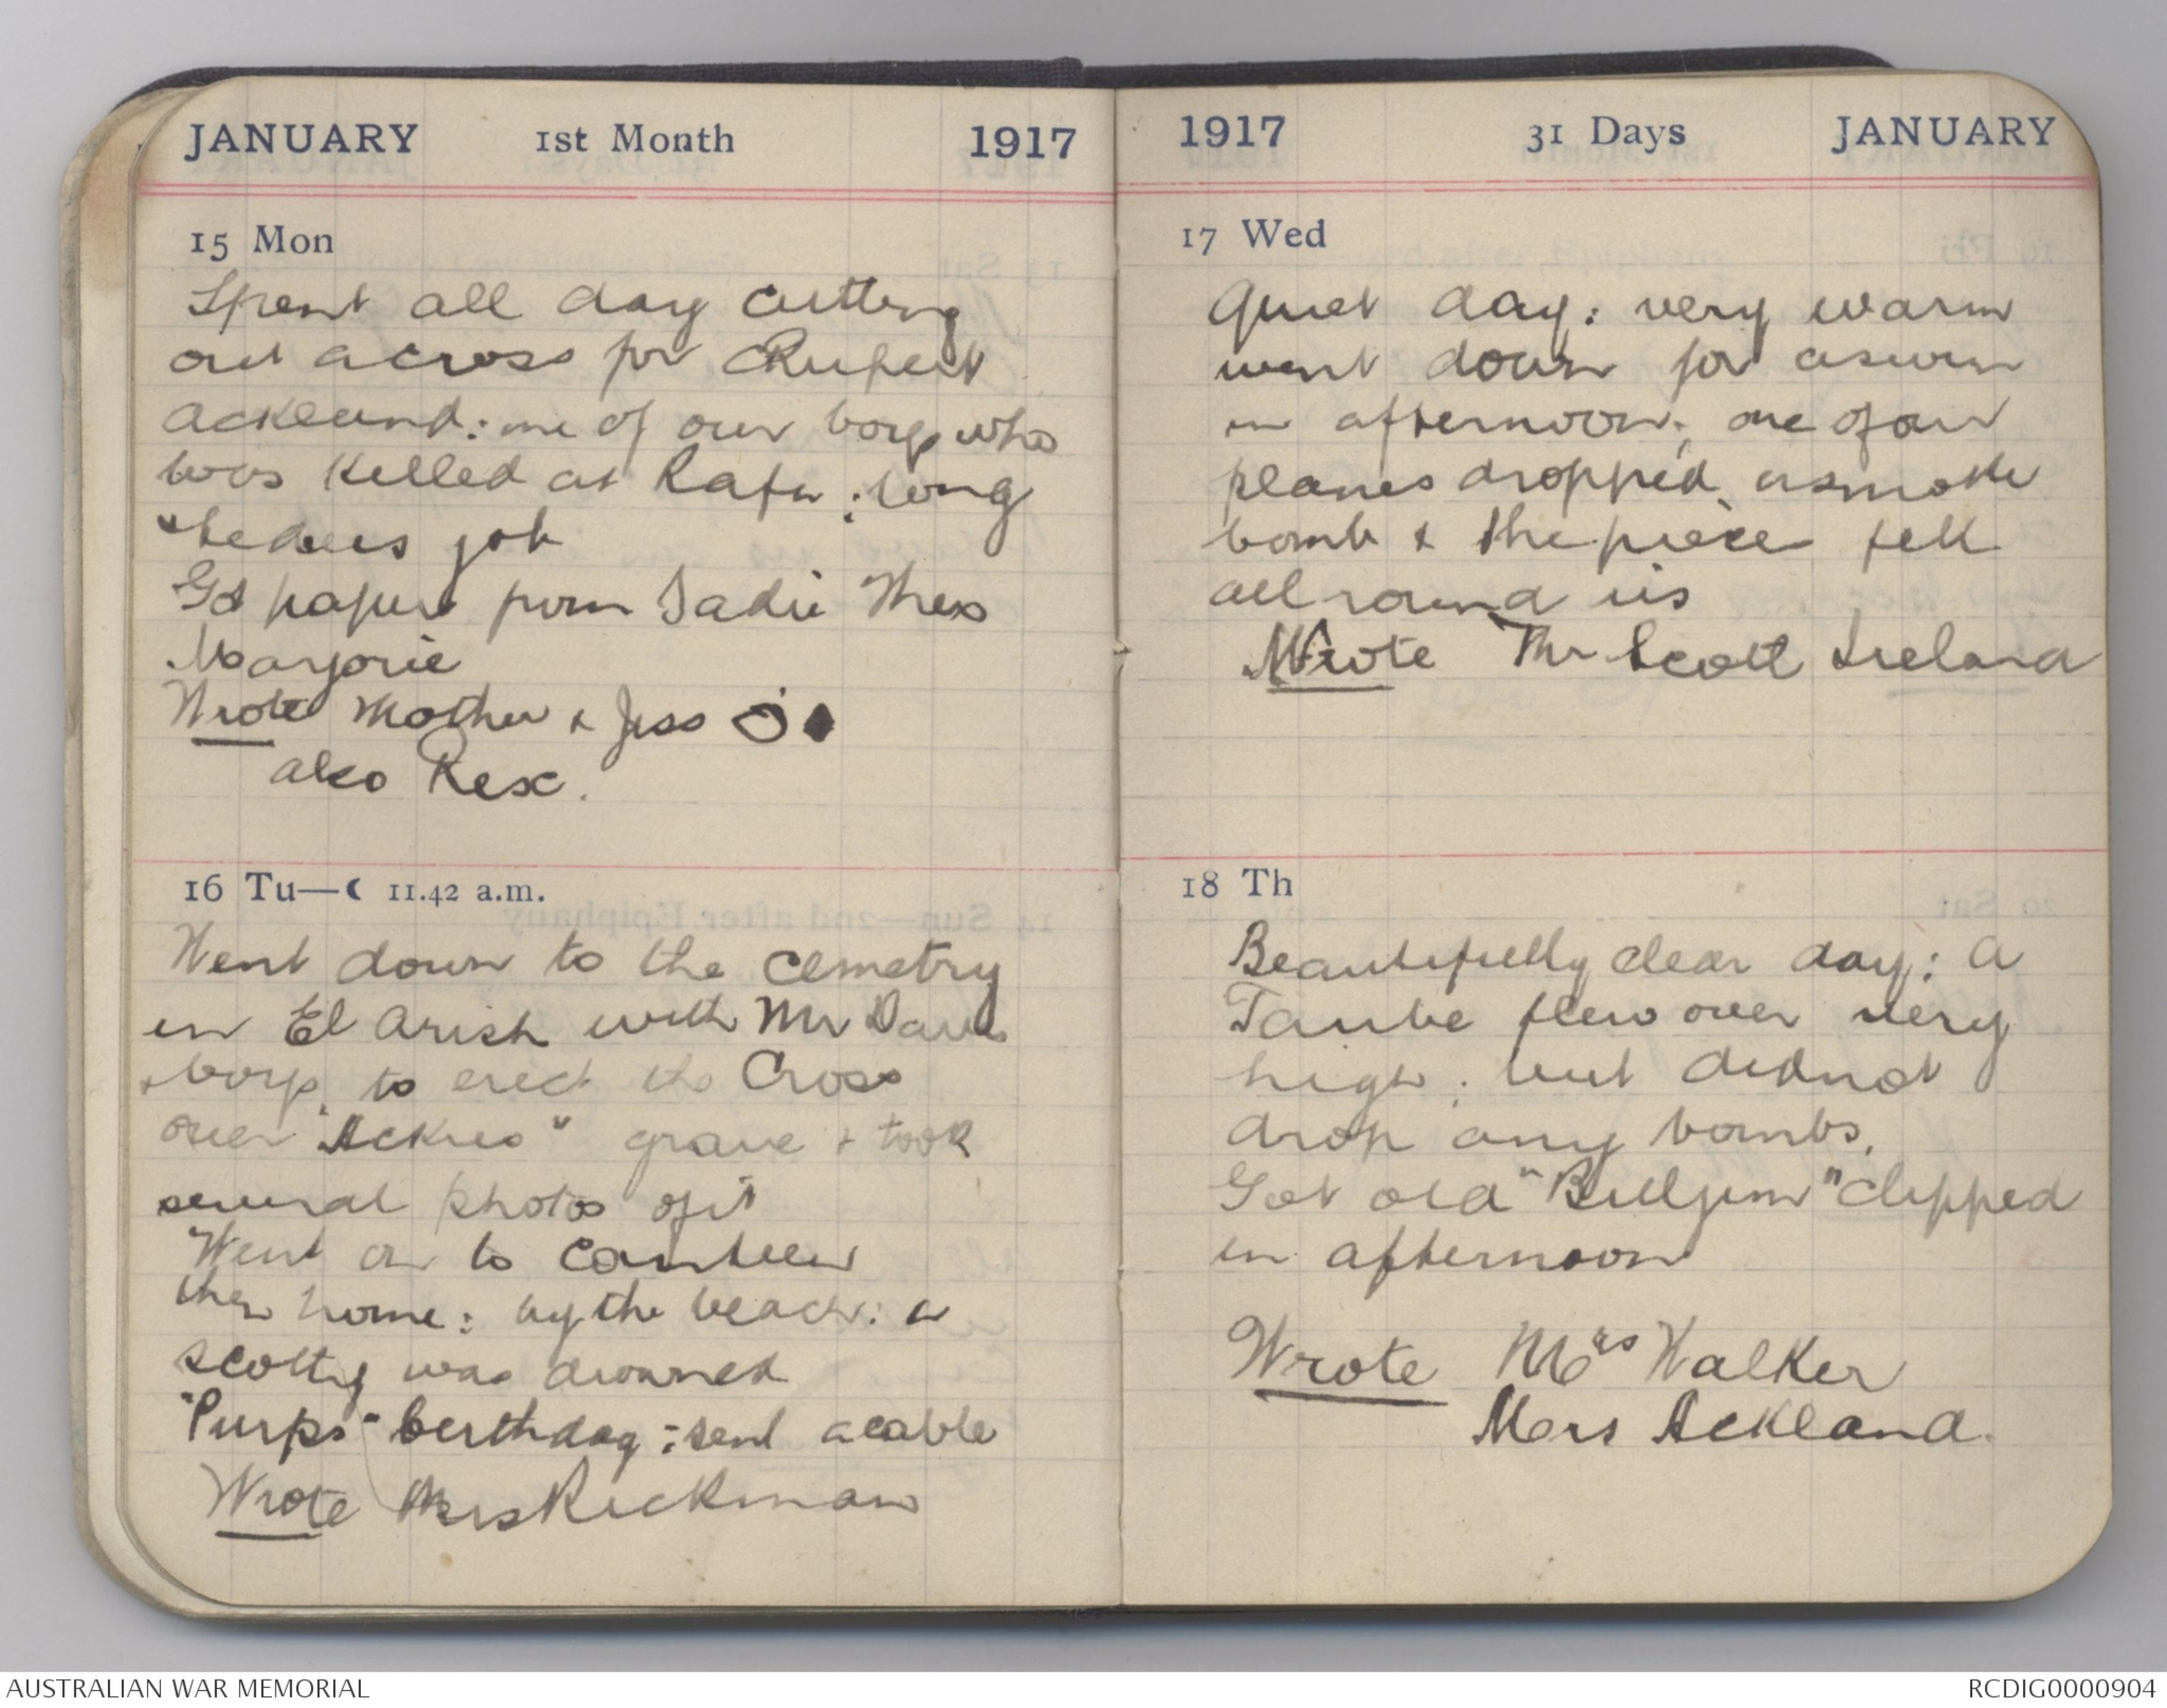 JANUARY 1st Month 1917
15 Mon
Spent all day cutting
out a cross for Rupert
Ackland: one of our boys who
was killed at Rafa; long
tedeus job
Got papers from Sadie Thex
Marjorie
Wrote Mother & Jess
also Rex.
16 Tu—☾ 11.42 a.m.
Went down to the cemetry
in El Arish with Mr Davis
& boys, to erect the Cross
over "Ackies" grave & took
several photos of it
Went on to Canteen
then home: by the beach: a
scotty was drowned
"Purps" birthday; sent a cable
Wrote Mrs Rickman
1917 31 Days JANUARY
17 Wed
Quiet day: very warm
went down for a swim
in afternoon; one of our
planes dropped a smoke
bomb & the pieces fell
all round us
Wrote Mr Scott Ireland
18 Th
Beautifully clear day: a
Taube flew over very
high; but did not
drop any bombs.
Got old "Billjim" clipped
in afternoon
Wrote Mrs Walker
Mrs Ackland.
AUSTRALIAN WAR MEMORIAL
RCDIG0000904